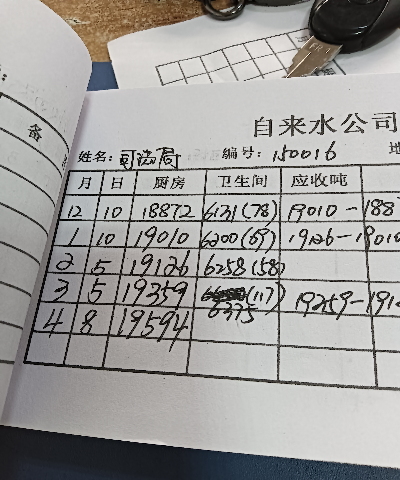 备
自来水公司
姓名: 司法局 编号: 150016
月 日 厨房 卫生间 应收吨
12 10 18872 6131(78) 19010-188
1 10 19010 6200(69) 19126-19010
2 5 19126 6258(58)
3 5 19359 (117) 19359-191
6375
4 8 19594